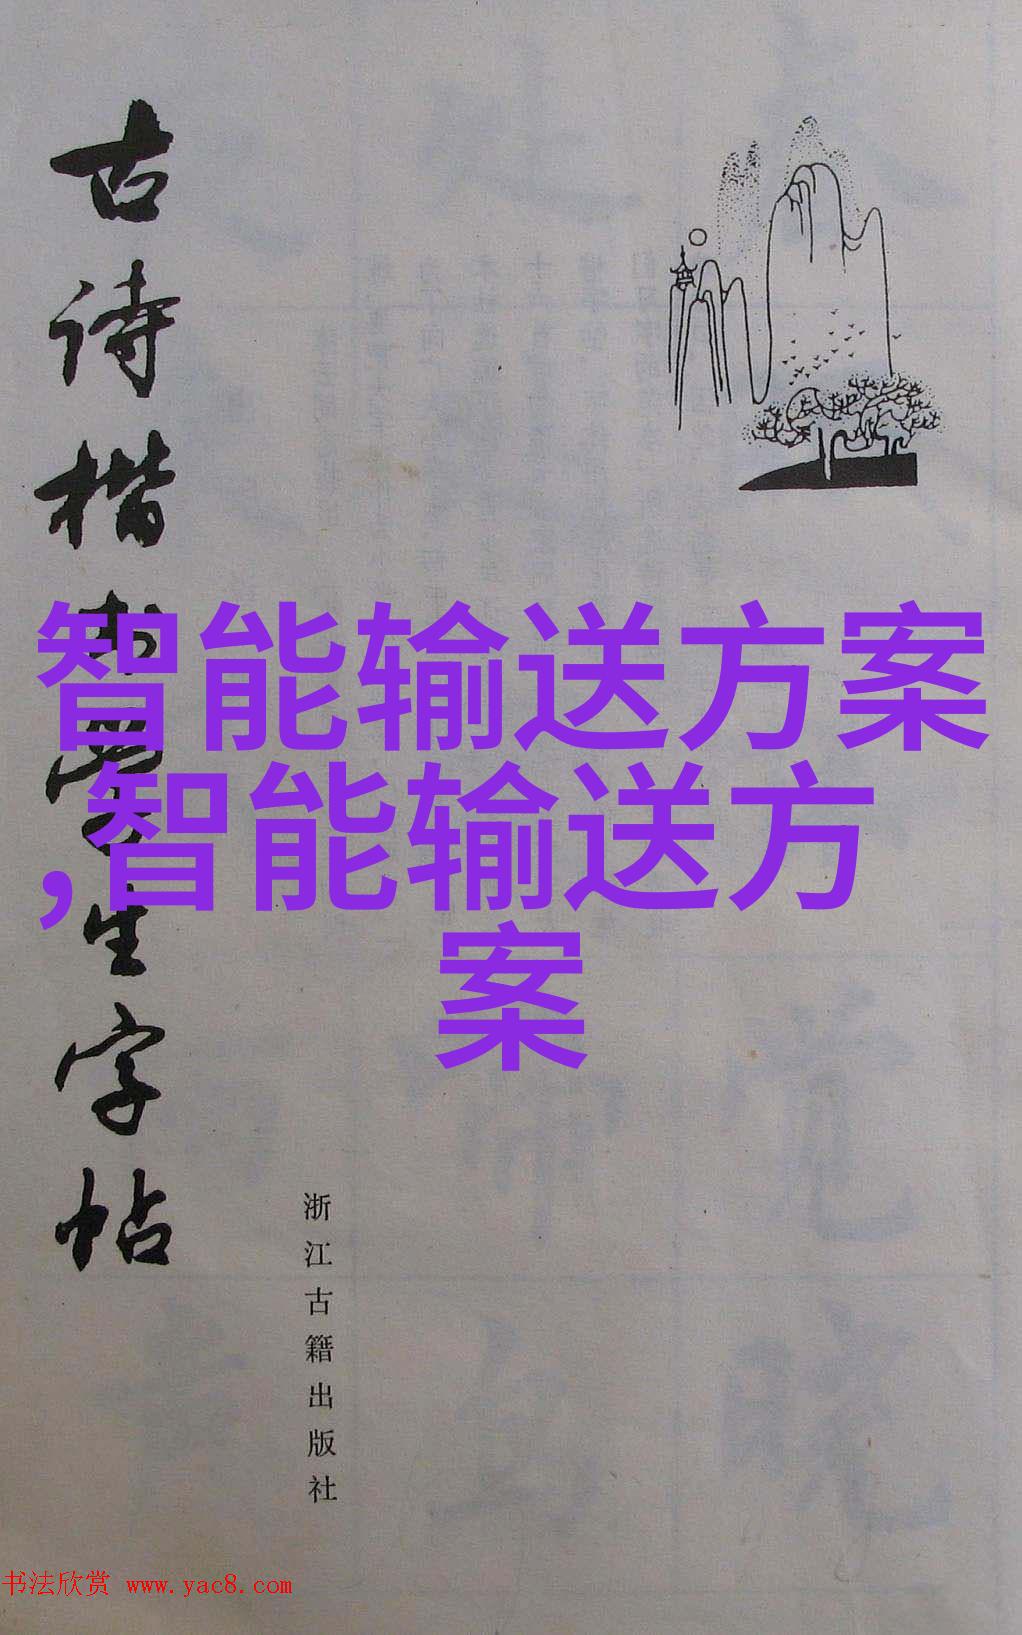 古诗楷书学生字帖
智能输送方案
,智能输送方
案
浙江古籍出版社
书法欣赏 www.yac8.com